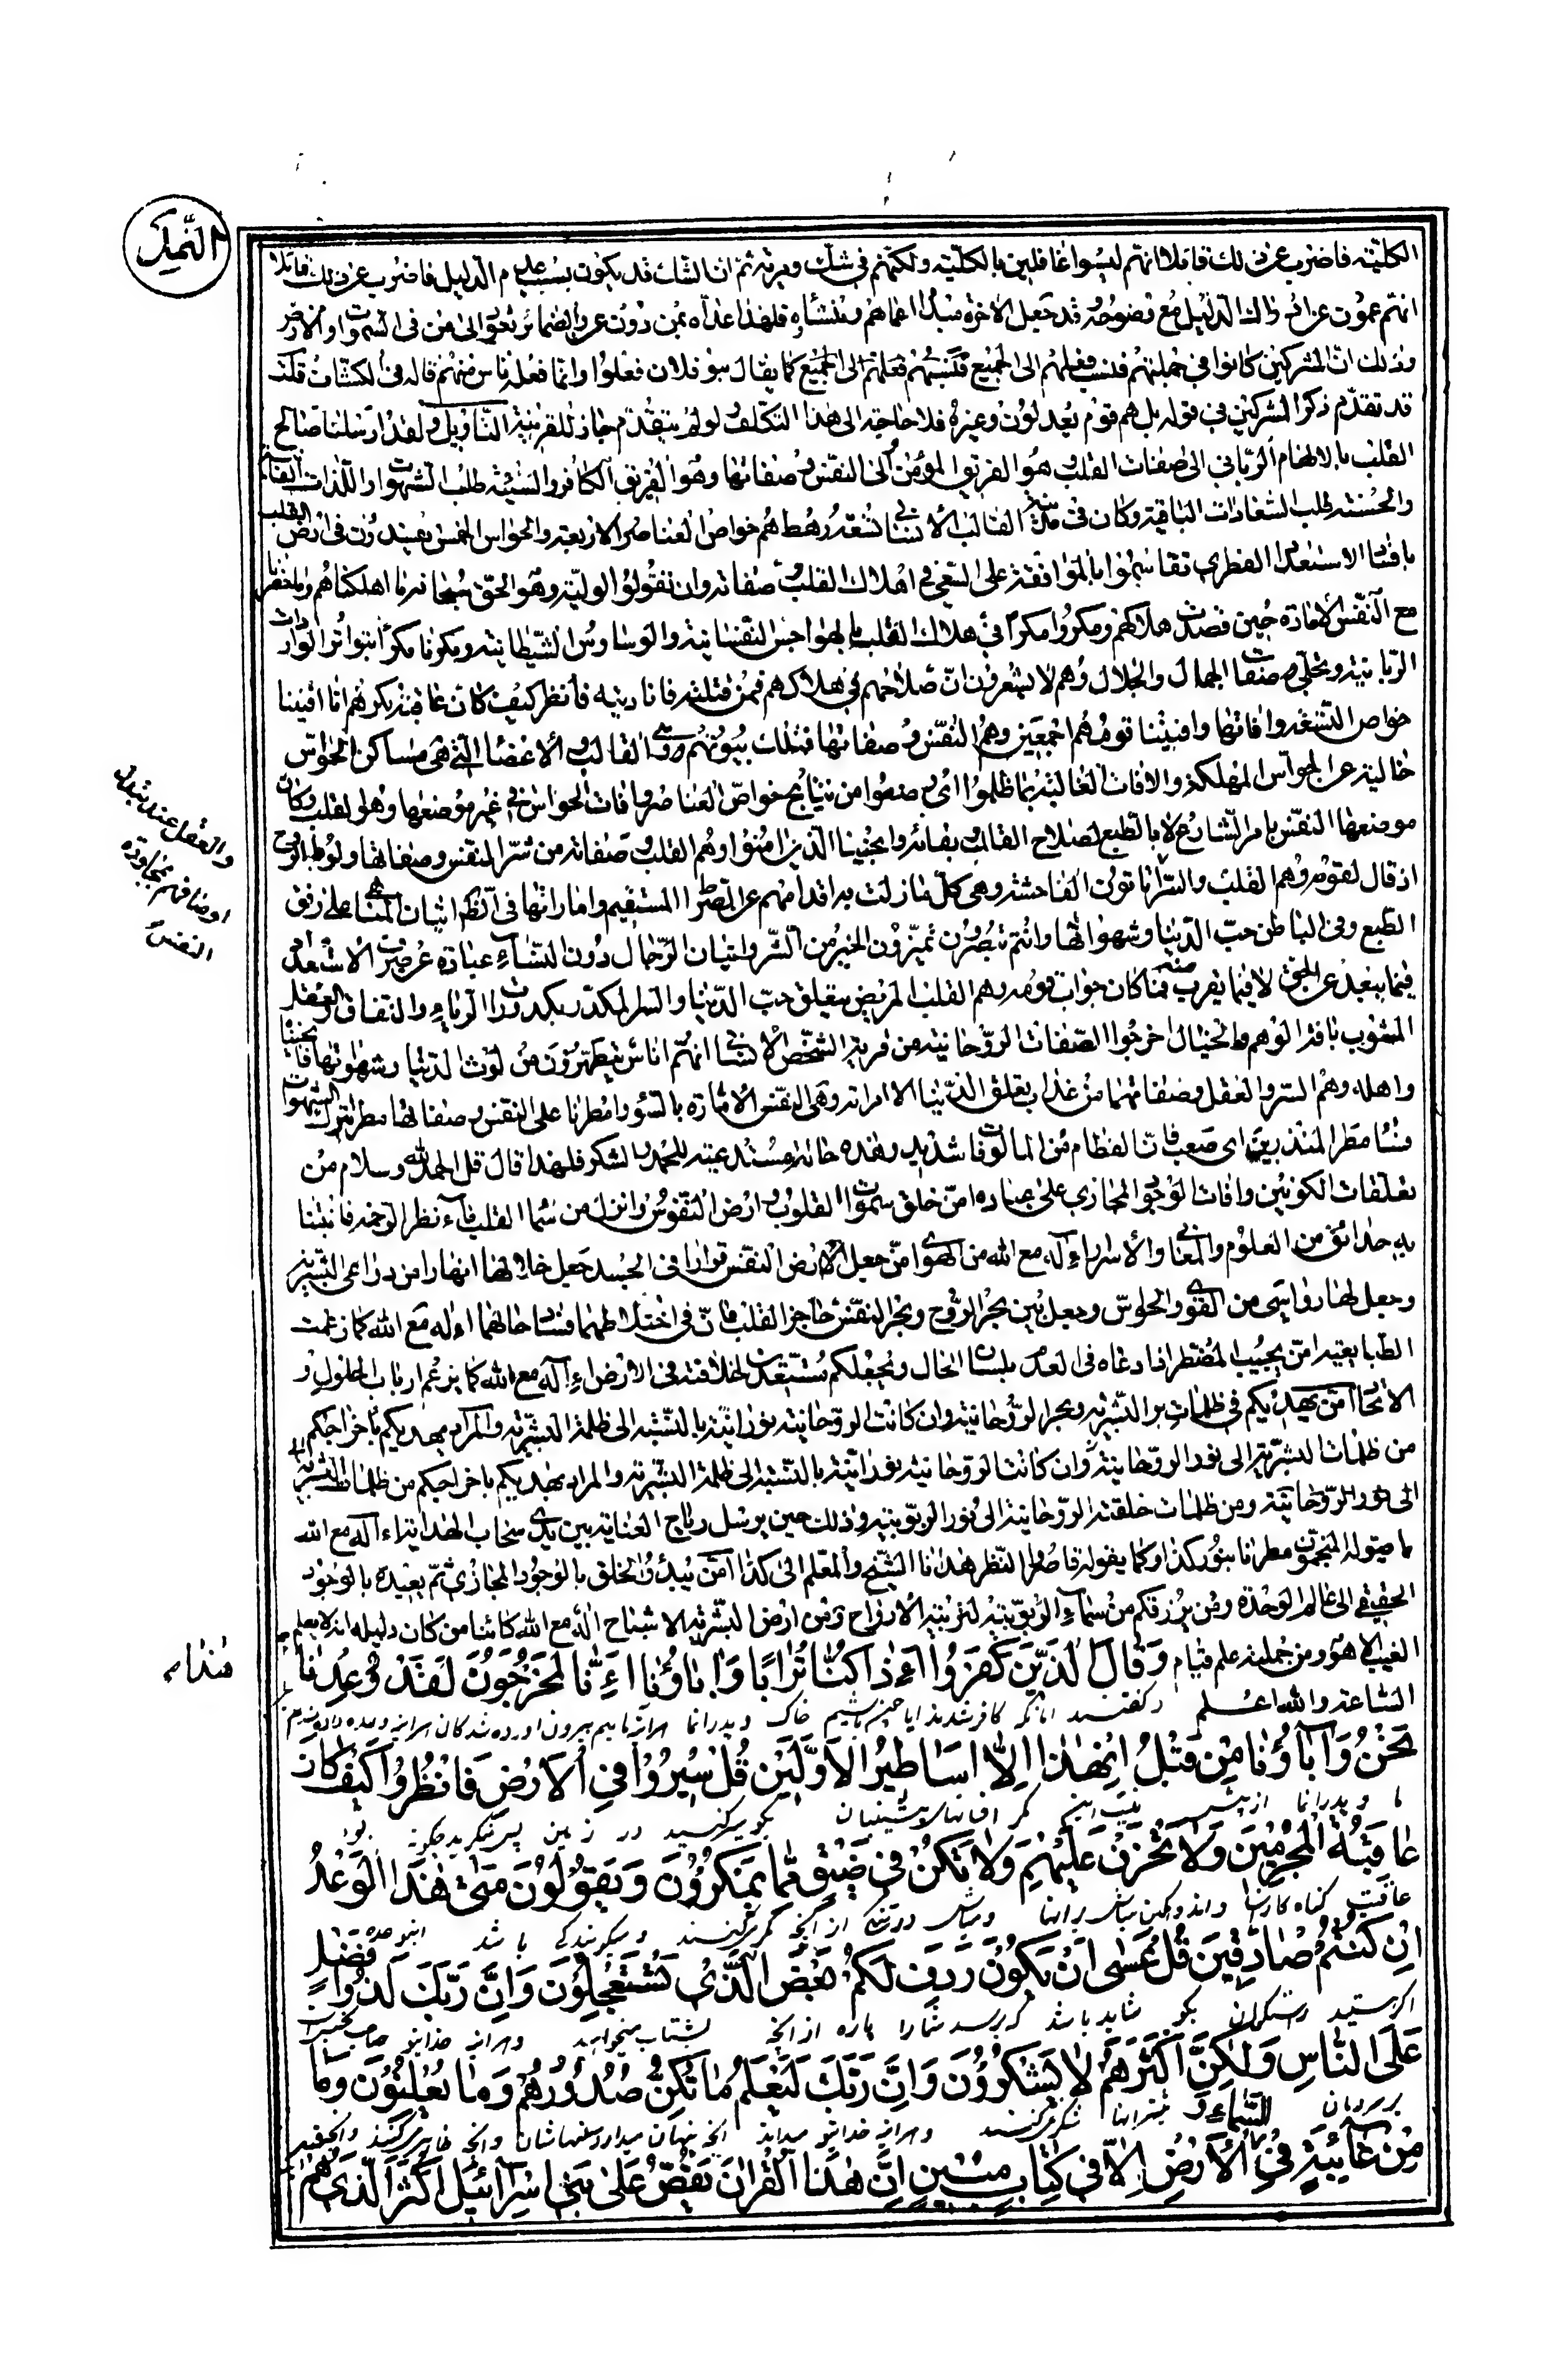 النمل
الكليّة فاضرب عن ذلك قائلا انهم ليسوا غافلين بالكليّة ولكنهم فى شك ومرية ثم ان الشك قد يكون بسبب عدم الدليل فاضرب عن ذلك قائلا
انهم عمون عن ادراك الدليل مع وضوحه قد جعل الاخرة مبدأ عماهم ومنشأه فلهذا عداه بمن دون عن والضمائر تعود الى من فى السموات والارض
وذلك ان المشركين كانوا فى جملتهم فنسب فعلهم الى الجميع كما يقال بنو فلان فعلوا وانما فعله ناس منهم قاله فى الكشاف قلت
قد تقدم ذكر المشركين فى قوله بل هم قوم يعدلون وغيره فلا حاجة الى هذا التكلف ولو لم يتقدم جاز للقرينة التأويل ولقد ارسلنا صالح
القلب بالالهام الربانى الى صفات القلب وهو الفريق المؤمن والى النفس وصفاتها وهو الفريق الكافر والسيئة طلب الشهوات واللذات الفانية
والحسنة طلب السعادات الباقية وكان فى مدينة القالب الانسانى تسعة رهط هم خواص العناصر الاربعة والحواس الخمس يفسدون فى ارض القلب
بافساد الاستعداد الفطرى تقاسموا بالموافقة على السعى فى اهلاك القلب وصفاته وان نقولوا لوليه وهو الحق سبحانه ما اهلكناهم وما حضرنا
مع النفس الامارة حين قصدت هلاكهم ومكروا مكرا فى هلاك القلب بالهواجس النفسانية والوساوس الشيطانية ومكرنا مكرا بتواتر الواردات
الربانية وتجلى صفات الجمال والجلال وهم لا يشعرون ان صلاحهم فى هلاكهم فمن قتلته فانا ديته فانظر كيف كان عاقبة مكرهم انا افنينا
خواص التسعة وافاتها وافنينا قومهم اجمعين وهم النفس وصفاتها فتلك بيوتهم وهى القالب والاعضاء التى هى مساكن الحواس
خالية عن الحواس المهلكة والافات الغالبة بما ظلموا اى وضعوا من نتايج خواص العناصر وافات الحواس فى غير موضعها وهو القلب وكان
موضعها النفس بامر الشارع لا بالطبع لصلاح القالب وبقائه وانجينا الذين امنوا وهم القلب وصفاته من شر النفس وصفاتها ولوط الروح
اذ قال لقومه وهم القلب والسر اتأتون الفاحشة وهى كل ما زلت به اقدامهم عن الصراط المستقيم واماراتها فى الظاهر اتيان المناهى على وفق
الطبع وفى الباطن حب الدنيا وشهواتها وانتم تبصرون تميزون الخير من الشر واتيان الرجال دون النساء عبارة عن صرف الاستعداد
فيما يبعد عن الحق لا فيما يقرب منه فما كان جواب قومه وهم القلب المريض بتعلق حب الدنيا والسر المكدر بكدورات الرياء والنفاق والعقل
المشوب بافة الوهم والخيال اخرجوا الصفات الروحانية من قرية الشخص الانسانى انهم اناس يتطهرون من لوث الدنيا وشهواتها فانجينا
واهله وهم السر والعقل وصفاتهما من عذاب تعلق الدنيا الا امراته وهى النفس الامارة بالسوء وامطرنا على النفس وصفاتها مطر ترك الشهوات
فساء مطر المنذرين اى صعب فان الفطام من المألوفات شديد وهذه حالة مستدعية للحمد والشكر فلهذا قال قل الحمد لله وسلام من
تعلقات الكونين وافات الوجود المجازى على عباده امن خلق سموات القلوب وارض النفوس وانزل من سماء القلب ماء نظر الرحمة فانبتنا
به حدائق من العلوم والمعانى والاسرار ءاله مع الله من الهوى امن جعل الارض النفس قرارا فى الجسد جعل خلالها انهارا من دواعى البشرية
وجعل لها رواسى من القوى والحواس وجعل بين بحر الروح وبحر النفس حاجز القلب فان فى اختلاطهما فساد حالهما ءاله مع الله كما زعمت
الطبايعية امن يجيب المضطر اذا دعاه فى العدم بلسان الحال ويجعلكم مستعدين لخلافته فى الارض ءاله مع الله كما يزعم ارباب الحلول و
الاتحاد امن يهديكم فى ظلمات بر البشرية وبحر الروحانية وان كانت الروحانية نورانية بالنسبة الى ظلمة البشرية والمراد يهديكم باخراجكم
من ظلمات البشرية الى نور الروحانية وان كانت الروحانية نورانية بالنسبة الى ظلمة البشرية والمراد يهديكم باخراجكم من ظلمات البشرية
الى نور الروحانية ومن ظلمات خلقته الروحانية الى نور الربوبية وذلك حين يرسل رياح العناية بين يدى سحاب الهداية ءاله مع الله
ما يقوله المنجمون مطرنا بنوء كذا وكما يقوله قاصر النظر هدانا الشيخ والمعلم الى كذا امن يبدؤ الخلق بالوجود المجازى ثم يعيده بالوجود
الحقيقى الى عالم الوحدة ومن يرزقكم من سماء الربوبية لتربية الارواح ومن ارض البشرية لاشباح ءاله مع الله كائنا من كان دليله انه لا يعلم
الغيب الا هو ومن جملته علم قيام
الساعة والله اعلم
وَقَالَ الَّذِينَ كَفَرُوا ءَاِذَا كُنَّا تُرَابًا وَاٰبَاؤُنَا اَئِنَّا لَمُخْرَجُونَ لَقَدْ وُعِدْنَا هٰذَا
و گفتند آنانكه كافر شدند ايا چون باشيم خاك و پدران ما هراينه ما بيرون اورده شدگان هراينه وعده داده شديم
نَحْنُ وَاٰبَاؤُنَا مِنْ قَبْلُ اِنْ هٰذَا اِلَّا اَسَاطِيرُ الْاَوَّلِينَ قُلْ سِيرُوا فِي الْاَرْضِ فَانْظُرُوا كَيْفَ كَانَ
ما و پدران ما از پيش نيست اين مگر افسانهاى پيشينيان بگو سير كنيد در زمين پس بنگريد چگونه بود
عَاقِبَةُ الْمُجْرِمِينَ وَلَا تَحْزَنْ عَلَيْهِمْ وَلَا تَكُنْ فِي ضَيْقٍ مِمَّا يَمْكُرُونَ وَيَقُولُونَ مَتٰى هٰذَا الْوَعْدُ
عاقبت گناه كاران و اندوهگين مباش بر انها و مباش در تنگى از انچه مكر ميكنند و ميگويند كى باشد اين وعده
اِنْ كُنْتُمْ صَادِقِينَ قُلْ عَسٰى اَنْ يَكُونَ رَدِفَ لَكُمْ بَعْضُ الَّذِي تَسْتَعْجِلُونَ وَاِنَّ رَبَّكَ لَذُو فَضْلٍ
اگر هستيد راستگويان بگو شايد باشد كه برسد شما را پاره از انچه بشتاب ميخواهيد و هراينه خداى تو صاحب بخشش است
عَلَى النَّاسِ وَلٰكِنَّ اَكْثَرَهُمْ لَا يَشْكُرُونَ وَاِنَّ رَبَّكَ لَيَعْلَمُ مَا تُكِنُّ صُدُورُهُمْ وَمَا يُعْلِنُونَ وَمَا
بر مردمان بيشتر انها شكر نميكنند و هراينه خداى تو ميداند انچه پنهان ميدارد سينهاشان و انچه ظاهر ميكنند
مِنْ غَائِبَةٍ فِي السَّمَاءِ وَالْاَرْضِ اِلَّا فِي كِتَابٍ مُبِينٍ اِنَّ هٰذَا الْقُرْاٰنَ يَقُصُّ عَلٰى بَنِي اِسْرَائِيلَ اَكْثَرَ الَّذِي هُمْ
والعقل عند تبدل
اوصافهم بمجاورة
النفس